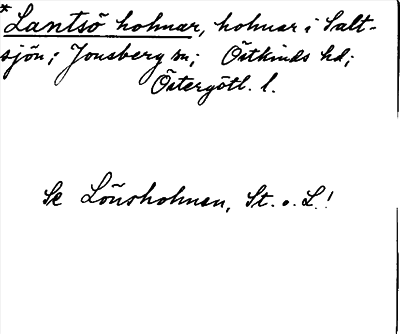 *Lantsö holmar, holmar i Salt-
sjön; Jonsberg sn; Östkinds hd;
Östergötl. l.
Se Lönsholmen, St. o. L!